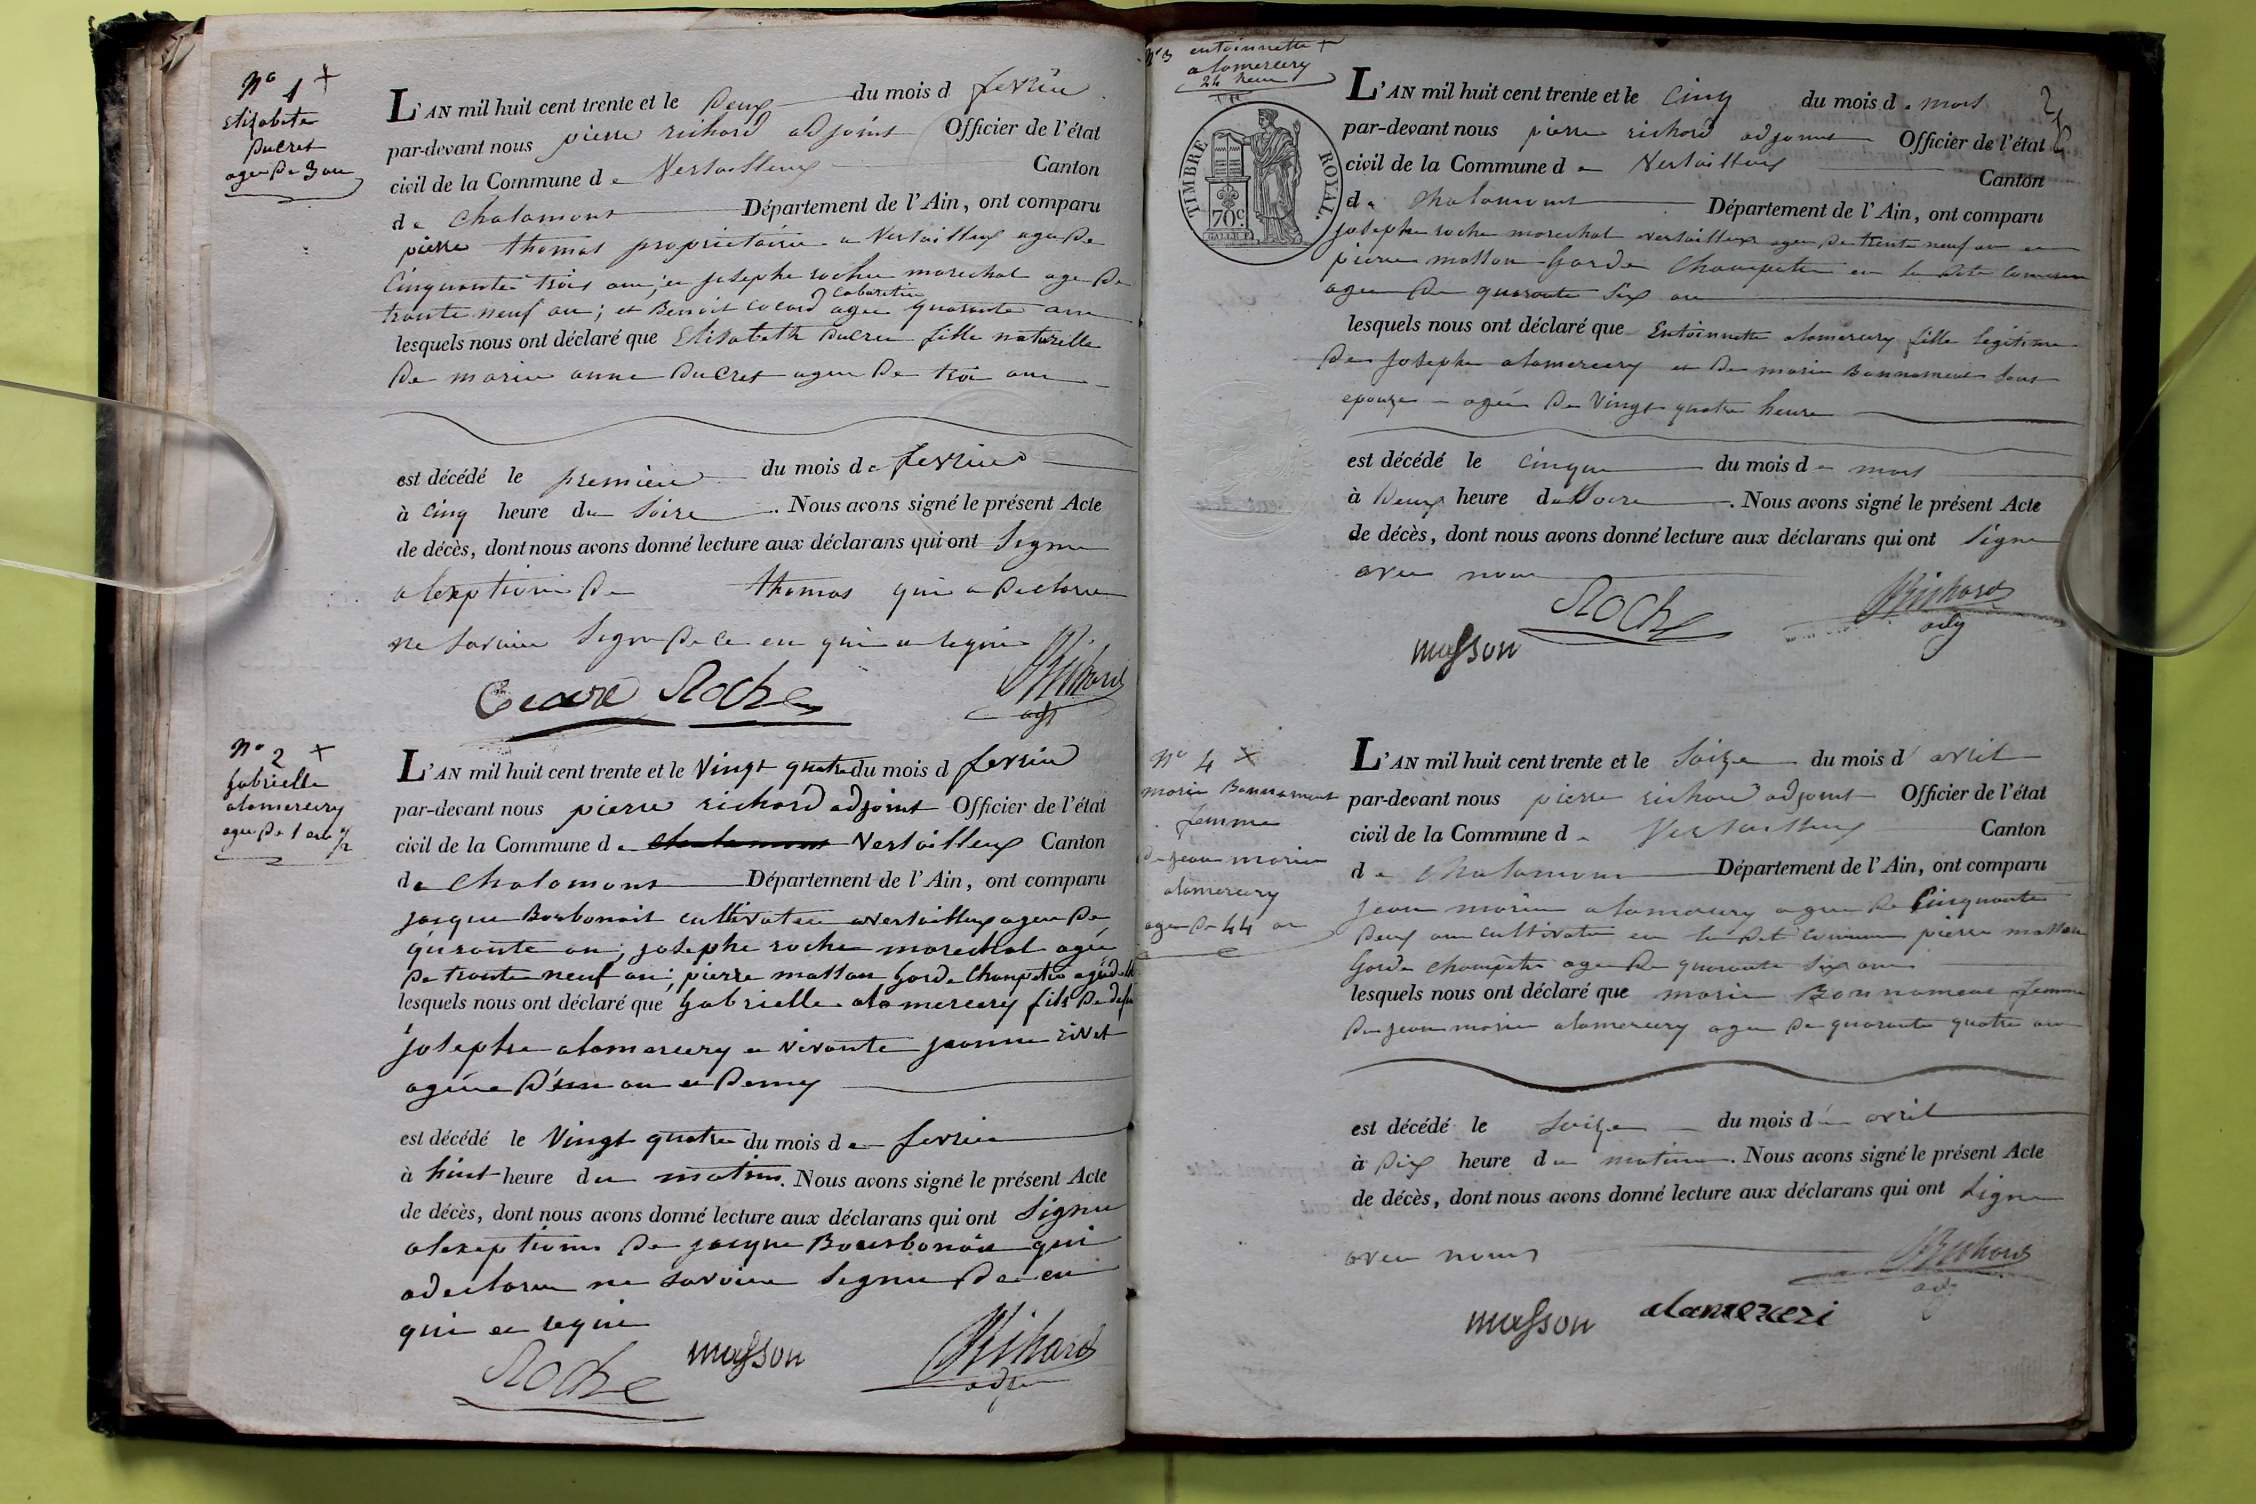 N° 1 +
Elizabete
Ducret
agée De 3 an
L'AN mil huit cent trente et le Deux du mois d fevrier
par-devant nous pierre richard adjoint Officier de l'état
civil de la Commune de Versailleux Canton
de Chalamont Département de l'Ain, ont comparu
pierre thomas proprietaire a Versailleux age De
Cinquante trois an; et Josephe roche marechal age De
trante neuf an; et Benoit Cocard cabaretier agee quarante an
lesquels nous ont déclaré que Elisabeth Ducret fille naturelle
De marie anne Ducret agee De troi an
est décédé le premier du mois de fevrier
à Cinq heure du Soire. Nous avons signé le présent Acte
de décès, dont nous avons donné lecture aux déclarans qui ont Signe
a lexeption De thomas qui a Declare
ne Savoire Signe De ce en qui a requi
Roche
Richard
adj
N° 2 +
gabrielle
alamercery
agee De 1 an 1/2
L'AN mil huit cent trente et le Vingt quatre du mois d fevrier
par-devant nous pierre richard adjoint Officier de l'état
civil de la Commune de chalamont Versailleux Canton
de Chalamont Département de l'Ain, ont comparu
Jacque Bourbonait cultivateu a Versailleux agee De
quarante an; Josephe roche marechal agée
De trante neuf an; pierre masson garde Champetre agé de 46
lesquels nous ont déclaré que gabrielle alamercery fils De defu
Josephe alamercery e vivante jeanne rivet
agée D'un an et Demy
est décédé le Vingt quatre du mois de fevrier
à huit heure du matin. Nous avons signé le présent Acte
de décès, dont nous avons donné lecture aux déclarans qui ont Signe
a lexeption De jacque Bourbonai qui
a declare ne savoire Signe De en
qui en requi
Roche masson Richard
adj
N° 3 entoinnette +
alamercery
24 heure
TIMBRE ROYAL.
70 c.
L'AN mil huit cent trente et le Cinq du mois de mars
par-devant nous pierre richard adjoint Officier de l'état
civil de la Commune de Versailleux Canton
de Chalamont Département de l'Ain, ont comparu
Josephe roche marechal a versailleux agee De trente neuf an et
pierre masson garde Champetre en la Dite Commune
agee De quarante Six an
lesquels nous ont déclaré que Entoinnette alamercery fille legitime
De Josephe alamercery et De marie Bonnament Sont
epouze agée De Vingt quatre heure
est décédé le cinque du mois de mars
à Deux heure du Soire. Nous avons signé le présent Acte
de décès, dont nous avons donné lecture aux déclarans qui ont Signe
avec nous
Roche Richard
adj
masson
N° 4 +
marie Bonnament
femme
De jean marie
alamercery
agee De 44 an
L'AN mil huit cent trente et le Saize du mois d'avril
par-devant nous pierre richard adjoint Officier de l'état
civil de la Commune de Versailleux Canton
de Chalamont Département de l'Ain, ont comparu
jean marie alamercery agee De Cinquante
Deux an cultivateu en la Dite Commune pierre masson
garde champetre age De quarante Six an
lesquels nous ont déclaré que marie Bonnament femme
De jean marie alamercery agee De quarante quatre an
est décédé le Saize du mois d'avril
à Dix heure du matin. Nous avons signé le présent Acte
de décès, dont nous avons donné lecture aux déclarans qui ont Signe
avec nous Richard
adj
masson alamerceri